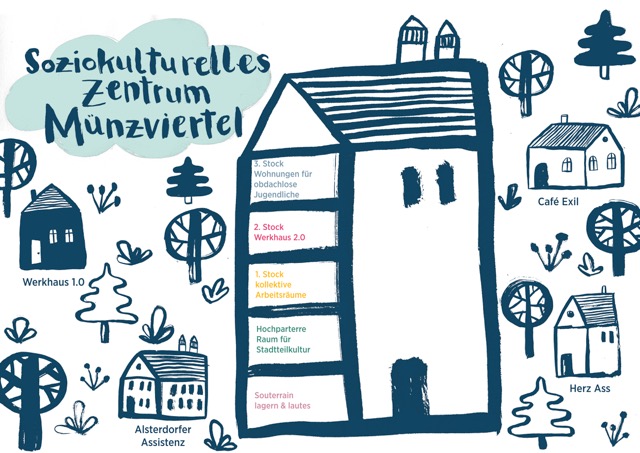 Soziokulturelles
Zentrum
Münzviertel
3. Stock
Wohnungen für
obdachlose
Jugendliche
2. Stock
Werkhaus 2.0
1. Stock
kollektive
Arbeitsräume
Hochparterre
Raum für
Stadtteilkultur
Souterrain
lagern & lautes
Werkhaus 1.0
Alsterdorfer
Assistenz
Café Exil
Herz Ass